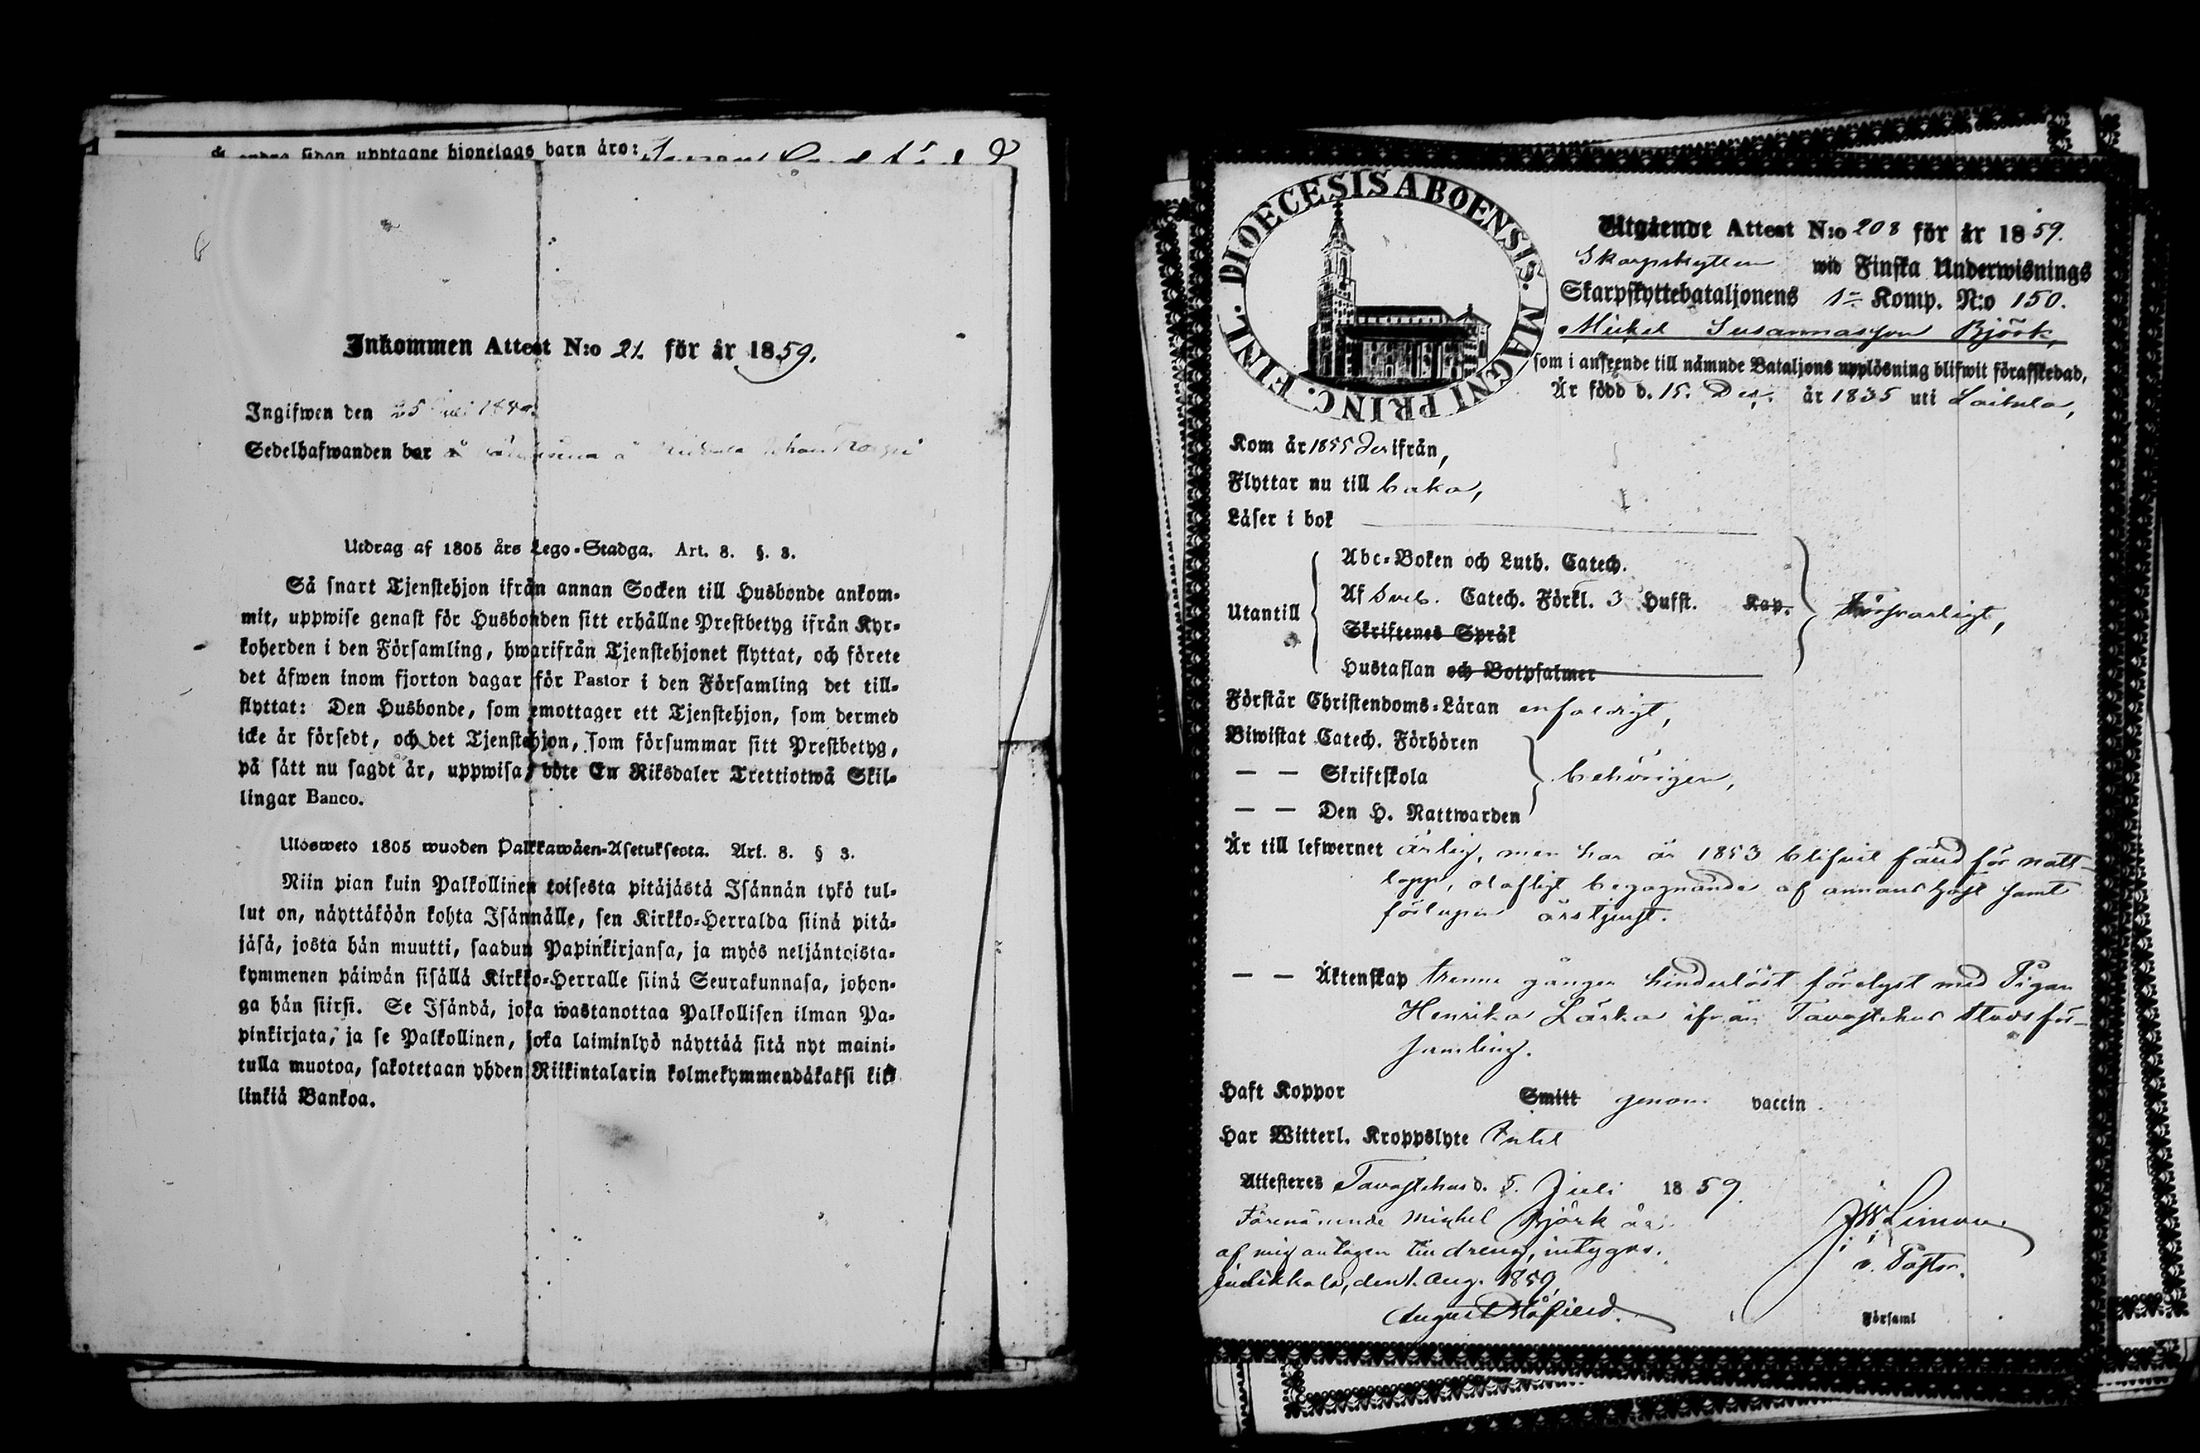 sidan upptagne hjonelags barn äro:
Inkommen Attest N:o 21. för år 1859.
Ingifwen den 25 Juli
Sedelhafwanden bor å
Utdrag af 1805 års Lego-Stadga. Art. 8. §. 3.
Så snart Tjenstehjon ifrån annan Socken till Husbonde ankom-
mit, uppwise genast för Husbonden sitt erhållne Prestbetyg ifrån Kyr-
koherden i den Församling, hwarifrån Tjenstehjonet flyttat, och förete
det äfwen inom fjorton dagar för Pastor i den Församling det till-
flyttat: Den Husbonde, som emottager ett Tjenstehjon, som dermed
icke är försedt, och det Tjenstehjon, som försummar sitt Prestbetyg,
på sätt nu sagdt är, uppwisa, böte En Riksdaler Trettiotwå Skil-
lingar Banco.
Ulosweto 1805 wuoden Palkkawäen-Asetuksesta. Art. 8. § 3.
Niin pian kuin Palkollinen toisesta pitäjästä Isännän tykö tul-
lut on, näyttäköön kohta Isännälle, sen Kirkko-Herralda siinä pitä-
jäsä, josta hän muutti, saadun Papinkirjansa, ja myös neljäntoista-
kymmenen päiwän sisällä Kirkko-Herralle siinä Seurakunnasa, johon-
ga hän siirsi. Se Isändä, joka wastanottaa Palkollisen ilman Pa-
pinkirjata, ja se Palkollinen, joka laiminlyö näyttää sitä nyt maini-
tulla muotoa, sakotetaan yhden Riikintalarin kolmekymmendäkaksi kil-
linkiä Bankoa.
FINL. DIOECESIS ABOENSIS. MAGNI PRINC.
Utgående Attest N:o 208 för år 1859.
Skarpskytten wid Finska Underwisnings
Skarpskyttebataljonens 1=a Komp. N:o 150.
Mickel Susannasson Björk,
som i anseende till nämnde Bataljons upplösning blifwit förafskedad,
Är född d. 15. Dec. år 1835 uti Loikala,
Kom år 1855 derifrån,
Flyttar nu till baka,
Läser i bok
Utantill
Abc-Boken och Luth. Catech.
Af Sveb. Catech. Förkl. 3 Hufst. Kap.
Skriftenes Språk
Hustaflan och Botpsalmer
Försvarligt,
Förstår Christendoms-Läran enfaldigt,
Biwistat Catech. Förhören
— — Skriftskola
— — Den H. Nattwarden
behörigen,
Är till lefwernet ärlig, men har år 1853 blifvit fäld för natt-
lopp, olofligt begagnande af annans häst samt
förlupen årstjenst.
— — Äktenskap trenne gånger hinderlöst förelyst med Pigan
Henrika Lärka ifrån Tavastehus Stadsför-
samling.
Haft Koppor Smitt genom vaccin
Har Witterl. Kroppslyte Intet
Attesteres Tavastehus d. 5. Juli 1859.
Förenämnde Michel Björk är
af mig antagen till dreng, intygas.
den 1. Aug. 1859,
August
v. Pastor.
Församl